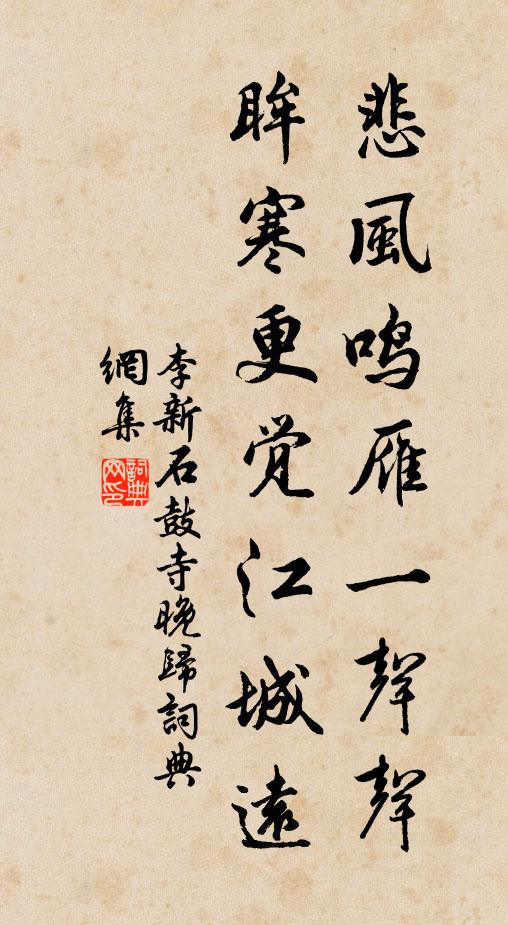 悲風鸣雁一聲聲
眸寒更觉江城遠
李新石鼓寺晚歸詞典
網集
詞典网印